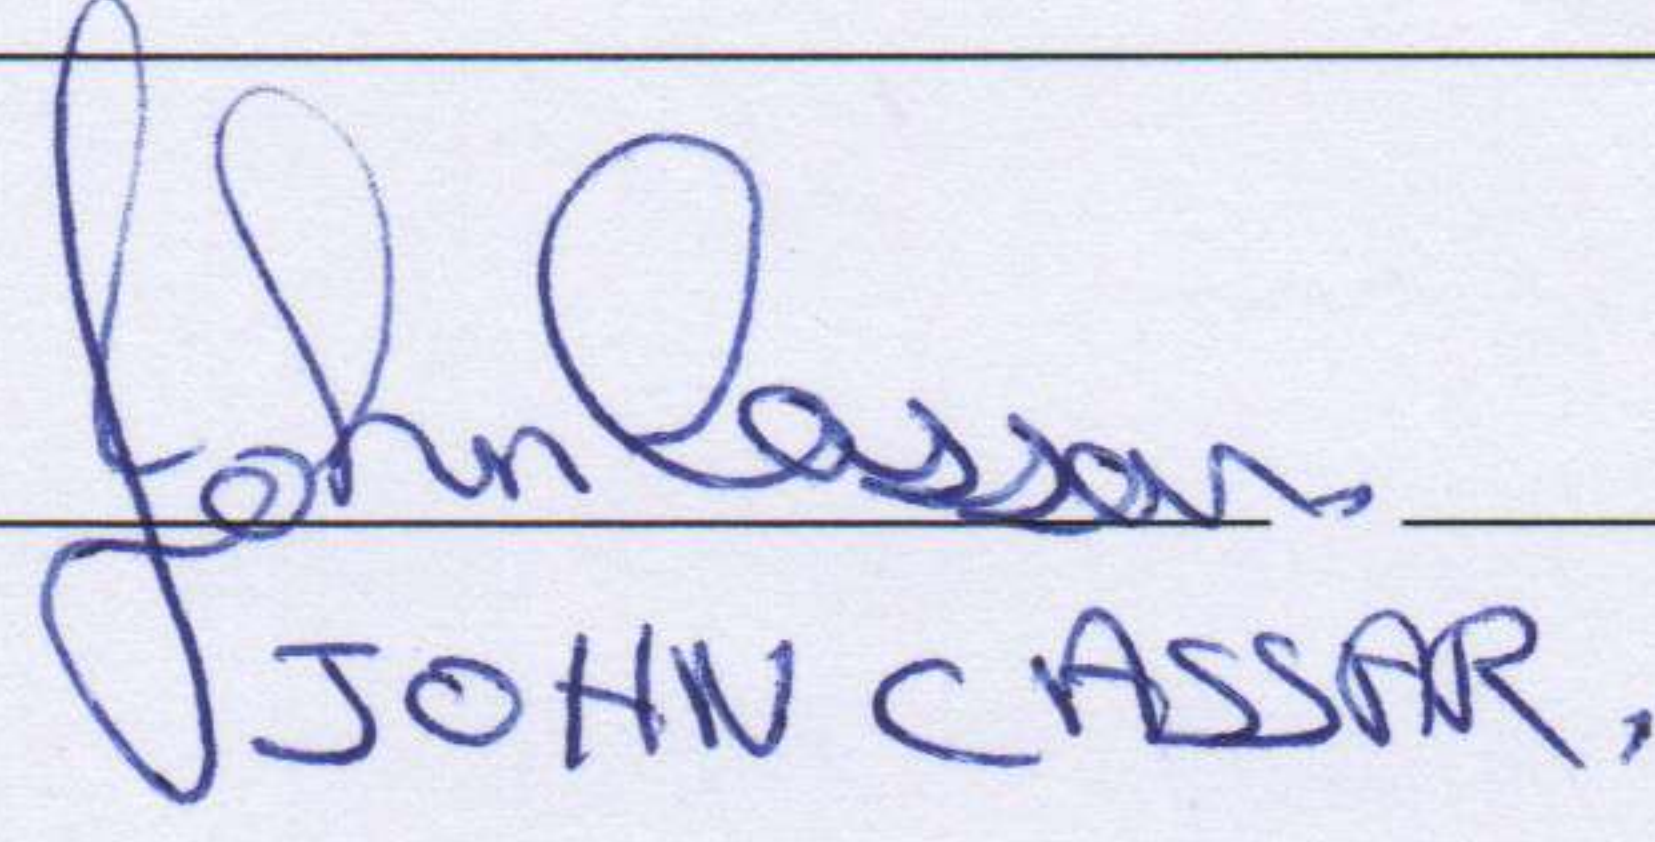 John Cassar.
JOHN CASSAR.